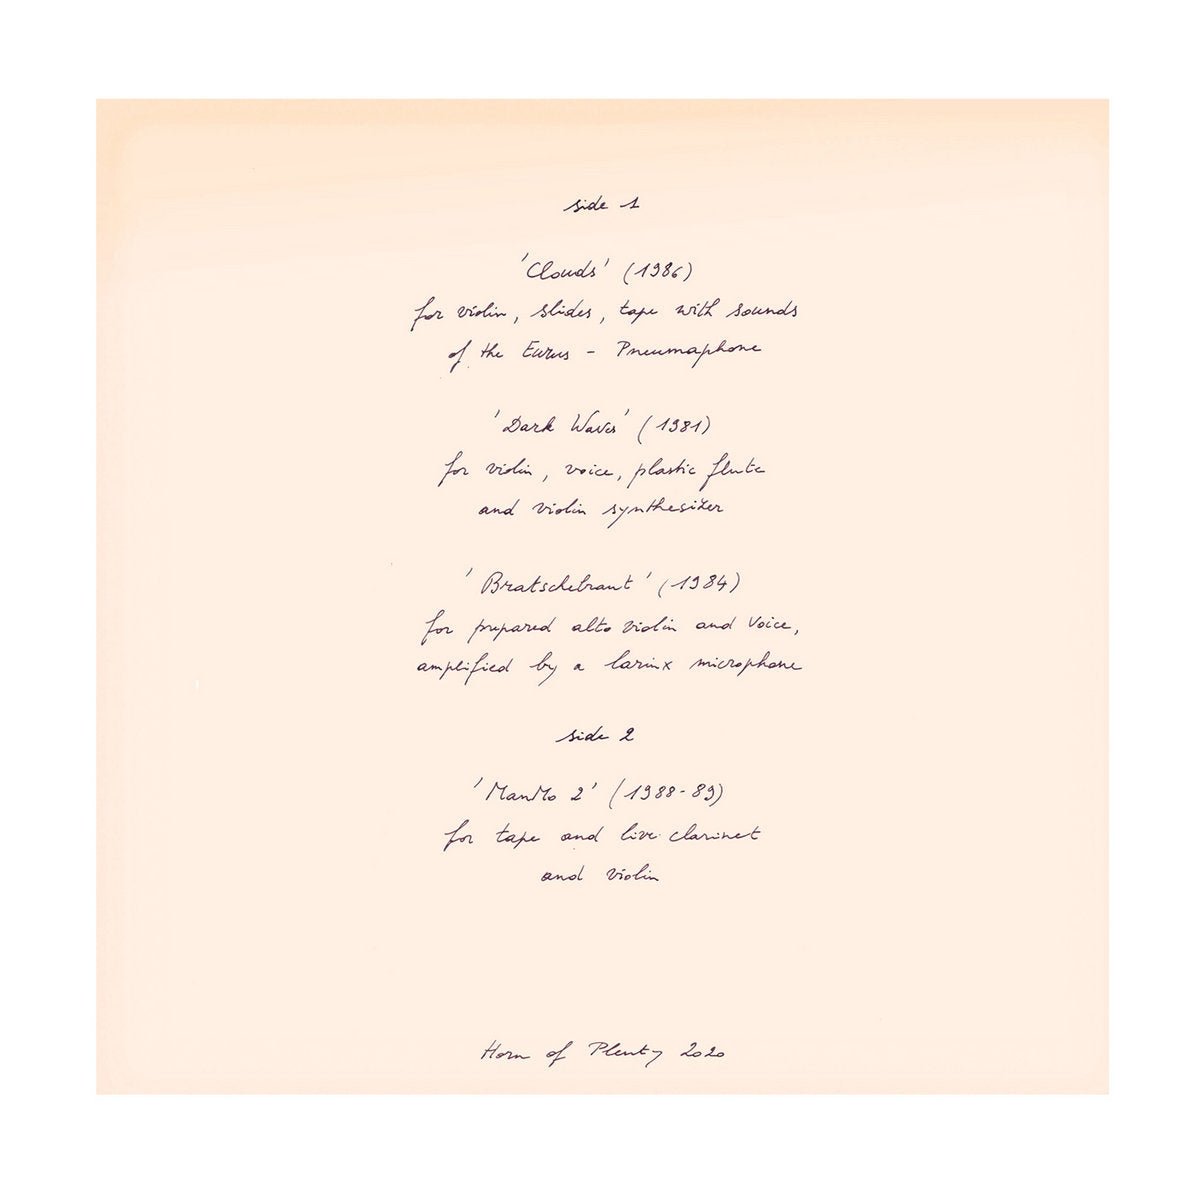 side 1
'Clouds' (1986)
for violin, slides, tape with sounds
of the Eurus - Pneumaphone
'Dark Waves' (1981)
for violin, voice, plastic flute
and violin synthesizer
'Bratschebraut' (1984)
for prepared alto violin and voice,
amplified by a larinx microphone
side 2
'ManMo 2' (1988-89)
for tape and live clarinet
and violin
Horn of Plenty 2020